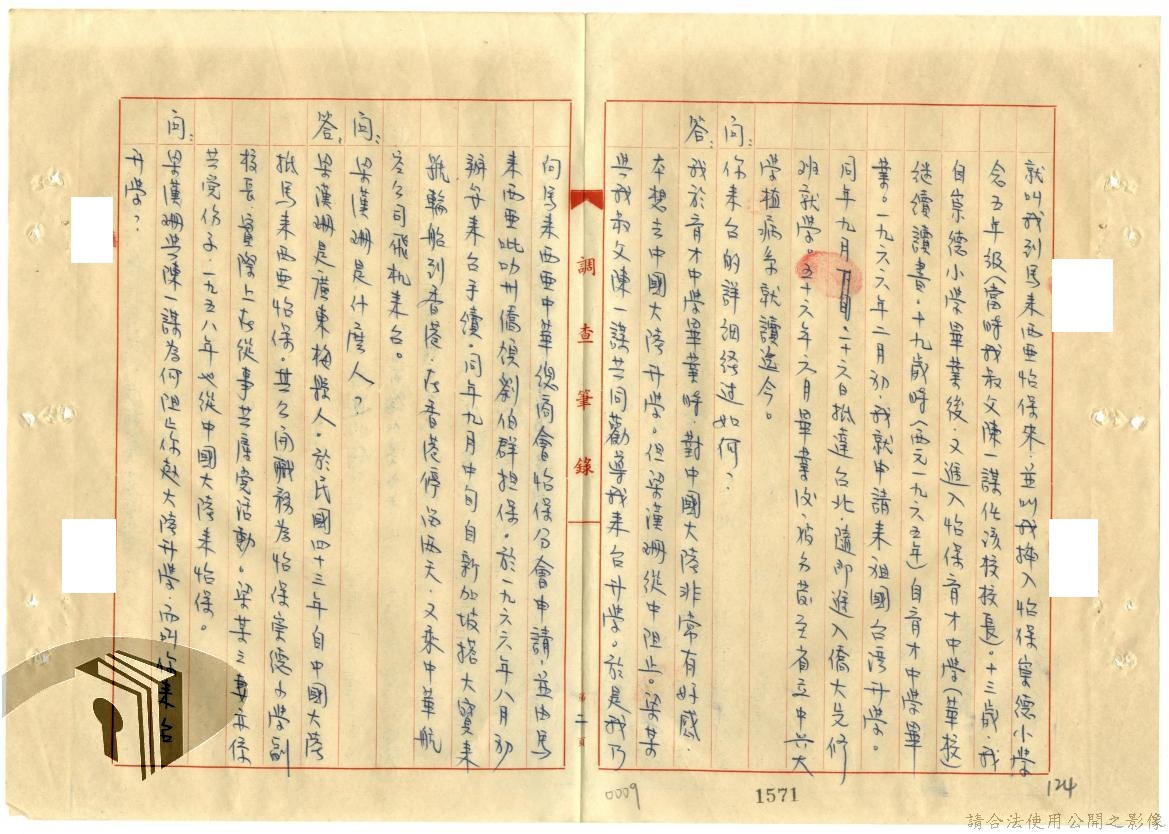 就叫我到馬來西亞怡保來，並叫我揷入怡保崇德小學
念五年級（當時我叔父陳一謀任該校校長）。十三歲，我
自崇德小學畢業後，又進入怡保育才中學（華校）
繼續讀書。十九歲時（西元一九六五年）自育才中學畢
業。一九六六年二月初，我就申請來祖國台灣升學。
同年九月二十六日抵達台北，隨即進入僑大先修
班就學。五十六年六月畢業後，被分發至省立中興大
學植病系就讀迄今。
問：你來台的詳細經过如何？
答：我於育才中學畢業時，對中國大陸非常有好感，
本想去中國大陸升學。但梁漢珊從中阻止。梁某
與我叔父陳一謀共同勸導我來台升學。於是我乃
調查筆錄
第二頁
向馬來西亞中華總商會怡保分會申請，並由馬
來西亞吡叻州僑領劉伯群担保。於一九六六年八月初
辦妥來台手續。同年九月中旬自新加坡搭大寶來
號輪船到香港，在香港停留兩天，又乘中華航
空公司飛机來台。
問：梁漢珊是什麼人？
答：梁漢珊是廣東梅縣人。於民國四十三年自中國大陸
抵馬來西亞怡保。其公開職務為怡保崇德小學副
校長，實際上在從事共產党活動。梁某之妻亦係
共党份子，一九五八年也從中國大陸來怡保。
問：梁漢珊與陳一謀為何阻止你赴大陸升學，而叫你來台
升學？
0009
1571
124
請合法使用公開之影像